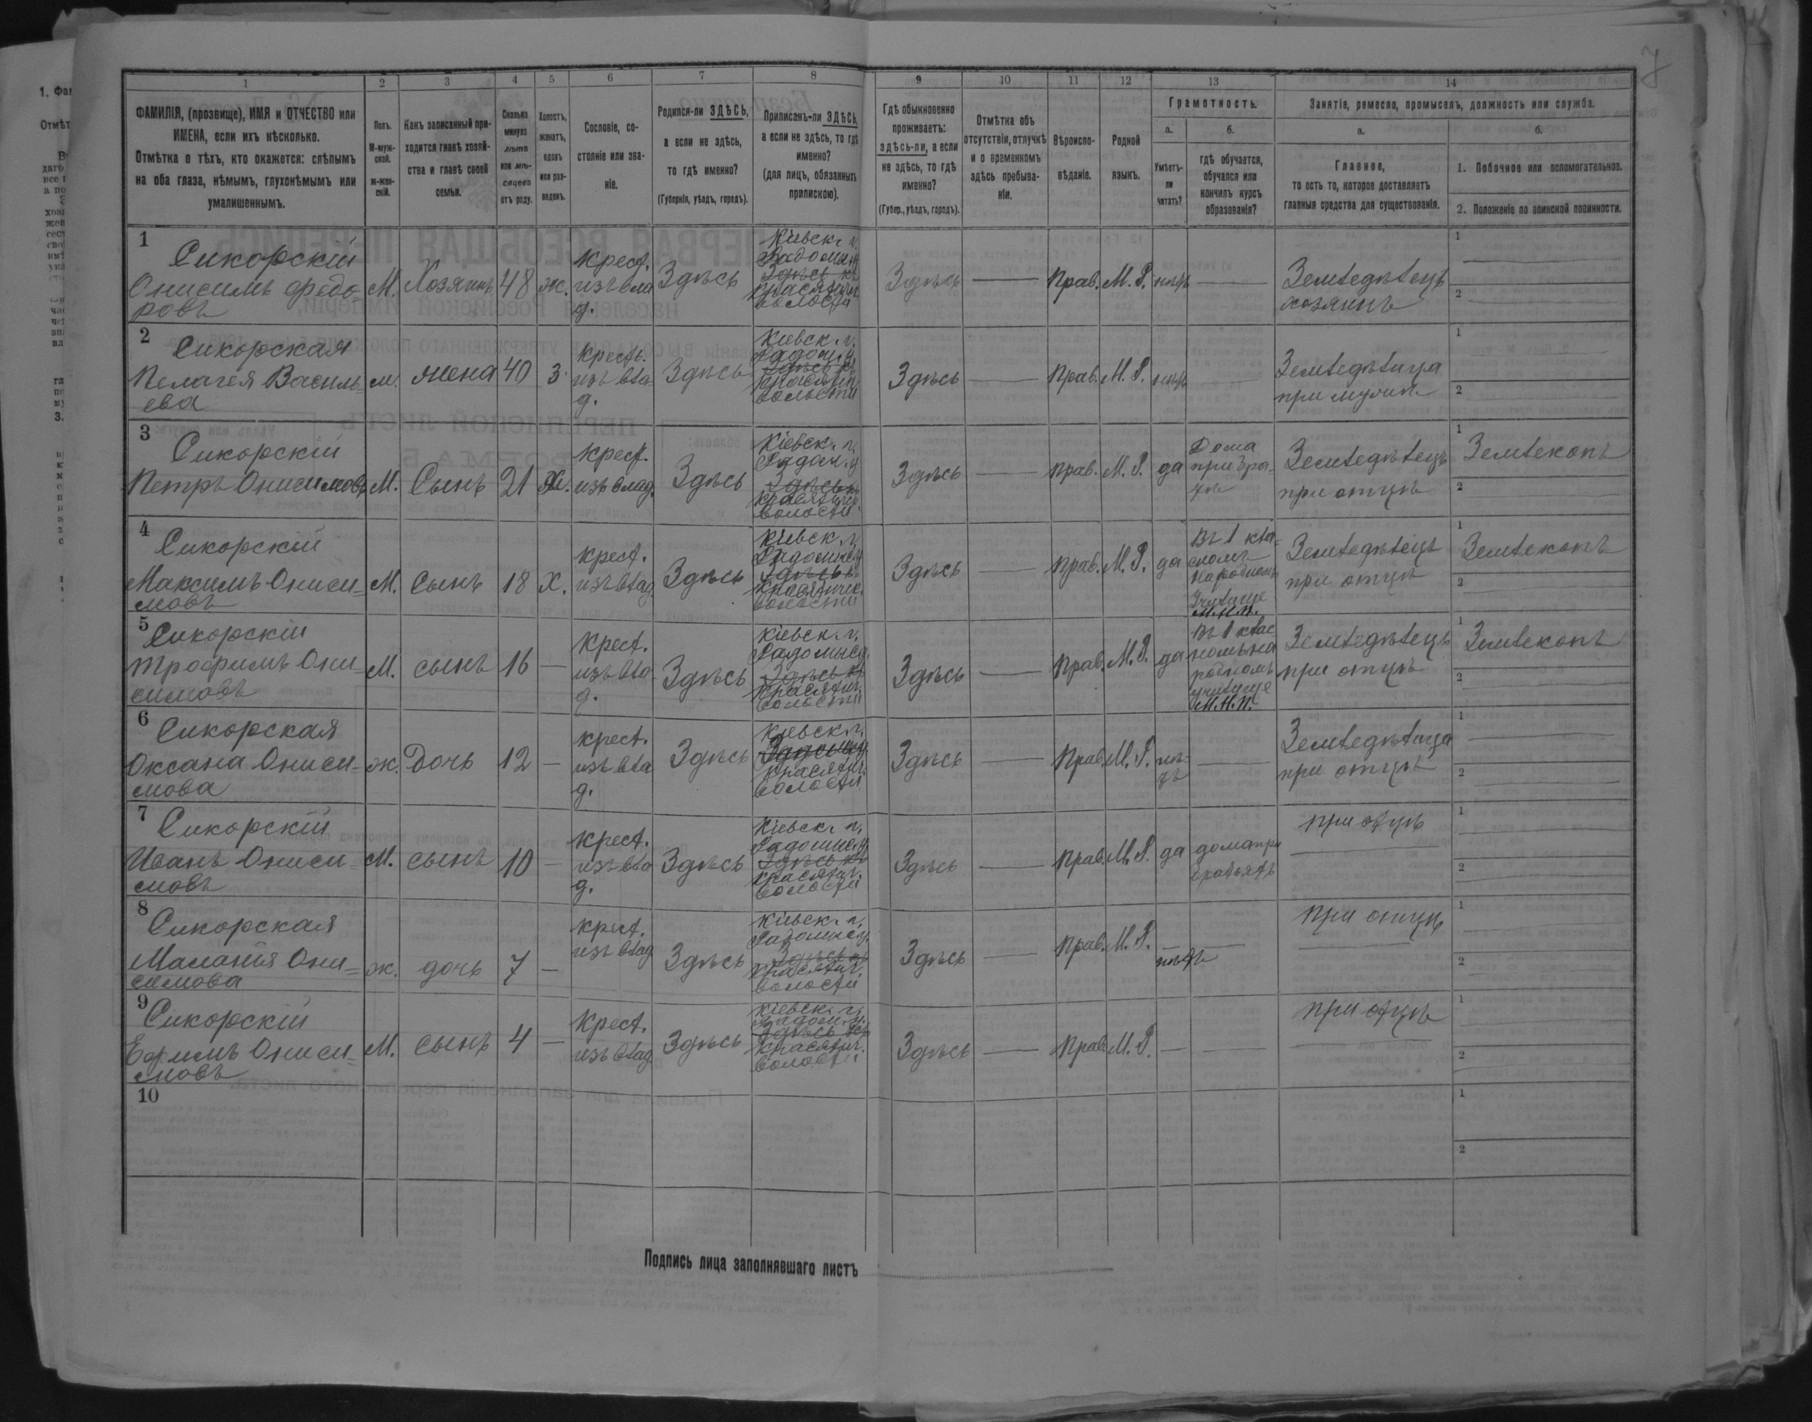 7
1 2 3 4 5 6 7 8 9 10 11 12 13 14
ФАМИЛІЯ, (прозвище), ИМЯ и ОТЧЕСТВО или
ИМЕНА, если ихъ нѣсколько.
Отмѣтка о тѣхъ, кто окажется: слѣпымъ
на оба глаза, нѣмымъ, глухонѣмымъ или
умалишеннымъ.
Полъ.
М-муж-
ской.
ж-жен-
скій.
Какъ записанный при-
ходится главѣ хозяй-
ства и главѣ своей
семьи.
Сколько
минуло
лѣтъ
или мѣ-
сяцевъ
отъ роду.
Холостъ,
женатъ,
вдовъ
или раз-
веденъ.
Сословіе, со-
стояніе или зва-
ніе.
Родился-ли ЗДѢСЬ,
а если не здѣсь,
то гдѣ именно?
(Губернія, уѣздъ, городъ).
Приписанъ-ли ЗДѢСЬ,
а если не здѣсь, то гдѣ
именно?
(для лицъ, обязанныхъ
припискою).
Гдѣ обыкновенно
проживаетъ:
здѣсь-ли, а если
не здѣсь, то гдѣ
именно?
(Губер., уѣздъ, городъ).
Отмѣтка объ
отсутствіи, отлучкѣ
и о временномъ
здѣсь пребыва-
ніи.
Вѣроиспо-
вѣданіе.
Родной
языкъ.
Грамотность.
а.
Умѣетъ-
ли
читать?
б.
гдѣ обучается,
обучался или
кончилъ курсъ
образованія?
Занятіе, ремесло, промыселъ, должность или служба.
а.
Главное,
то есть то, которое доставляетъ
главныя средства для существованія.
б.
1. Побочное или вспомогательное.
2. Положеніе по воинской повинности.
1
Сикорскій
Онисимъ Федо-
ровъ
М. Хозяинъ 48 ж.
крест.
изъ вла
д.
Здѣсь
Кіевск. г.
Радомы.
Здѣсь
Красятич.
волости
Здѣсь — Прав. М. Р. нѣтъ —
Земледѣлецъ
хозяинъ
1
2
2
Сикорская
Пелагея Василь-
ева
ж. жена 40 з.
крест.
изъ вла
д.
Здѣсь
Кіевск. г.
Радом. у.
Здѣсь
Красятич.
волости
Здѣсь — Прав. М. Р. нѣтъ —
Земледѣлица
при мужѣ
1
2
3
Сикорскій
Петръ Онисимовъ
М. Сынъ 21 Ж.
крест.
изъ влад.
Здѣсь
Кіевск. г.
Радом. у
Здѣсь
Красятич.
волости
Здѣсь — прав. М. Р. да
Дома
Земледѣлецъ
при отцѣ
1
Землекопъ
2
4
Сикорскій
Максимъ Ониси-
мовъ
М. Сынъ 18 Х.
крест.
изъ влад.
Здѣсь
Кіевск. г.
Радомысл.
Здѣсь
Красятич.
волости
Здѣсь — Прав. М. Р. да
Въ 1 кла-
сномъ
Народномъ
Училище
М.Н.П.
Земледѣлецъ
при отцѣ
1
Землекопъ
2
5
Сикорскій
Трофимъ Они-
симовъ
М. сынъ 16 —
крест.
изъ вла
д.
Здѣсь
Кіевск. г.
Радомысл.
Здѣсь
Красятич.
волости
Здѣсь — Прав. М. Р. да
Въ 1 клас
номъ на
родномъ
училище
М.Н.П.
Земледѣлецъ
при отцѣ
1
Землекопъ
2
6
Сикорская
Оксана Ониси-
мова
ж. Дочь 12 —
крест.
изъ вла
д.
Здѣсь
Кіевск. г.
Красятич.
волости
Здѣсь — Прав. М. Р. нѣ-
тъ —
Земледѣлица
при отцѣ
1
2
7
Сикорскій
Иванъ Ониси-
мовъ
М. сынъ 10 —
крест.
изъ вла
д.
Здѣсь
Кіевск. г.
Радомысл.
Здѣсь
Красятич.
волости
Здѣсь — Прав. М. Р. да
дома при
братьяхъ
при отцѣ
1
2
8
Сикорская
Маланія Они-
симова
ж. дочь 7 —
крест.
изъ влад
Здѣсь
Кіевск. г.
Радомысл.
Здѣсь
Красятич.
волости
Здѣсь — Прав. М. Р. —
нѣтъ
при отцѣ
1
2
9
Сикорскій
Ефимъ Ониси-
мовъ
М. сынъ 4 —
Крест.
изъ влад
Здѣсь
Кіевск. г.
Радом. у.
Здѣсь
Красятич.
волости
Здѣсь — Прав. М. Р. — —
при отцѣ
1
2
10
1
2
Подпись лица заполнявшаго листъ